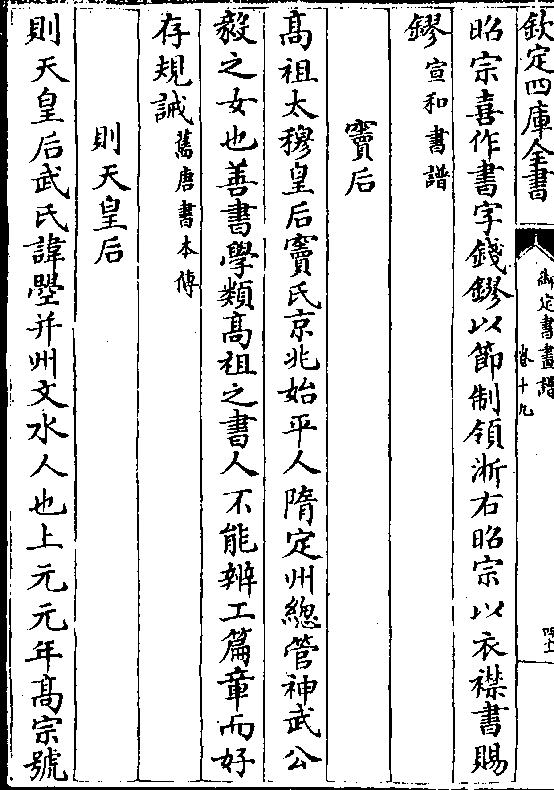 欽定四庫全書
御定書畫譜
卷十九
昭宗喜作書字錢鏐以節制領浙右昭宗以衣襟書賜
鏐宣和書譜
竇后
髙祖太穆皇后竇氏京兆始平人隋定州總管神武公
毅之女也善書學類髙祖之書人不能辨工篇章而好
存規誡舊唐書本傳
則天皇后
則天皇后武氏諱曌并州文水人也上元元年髙宗號